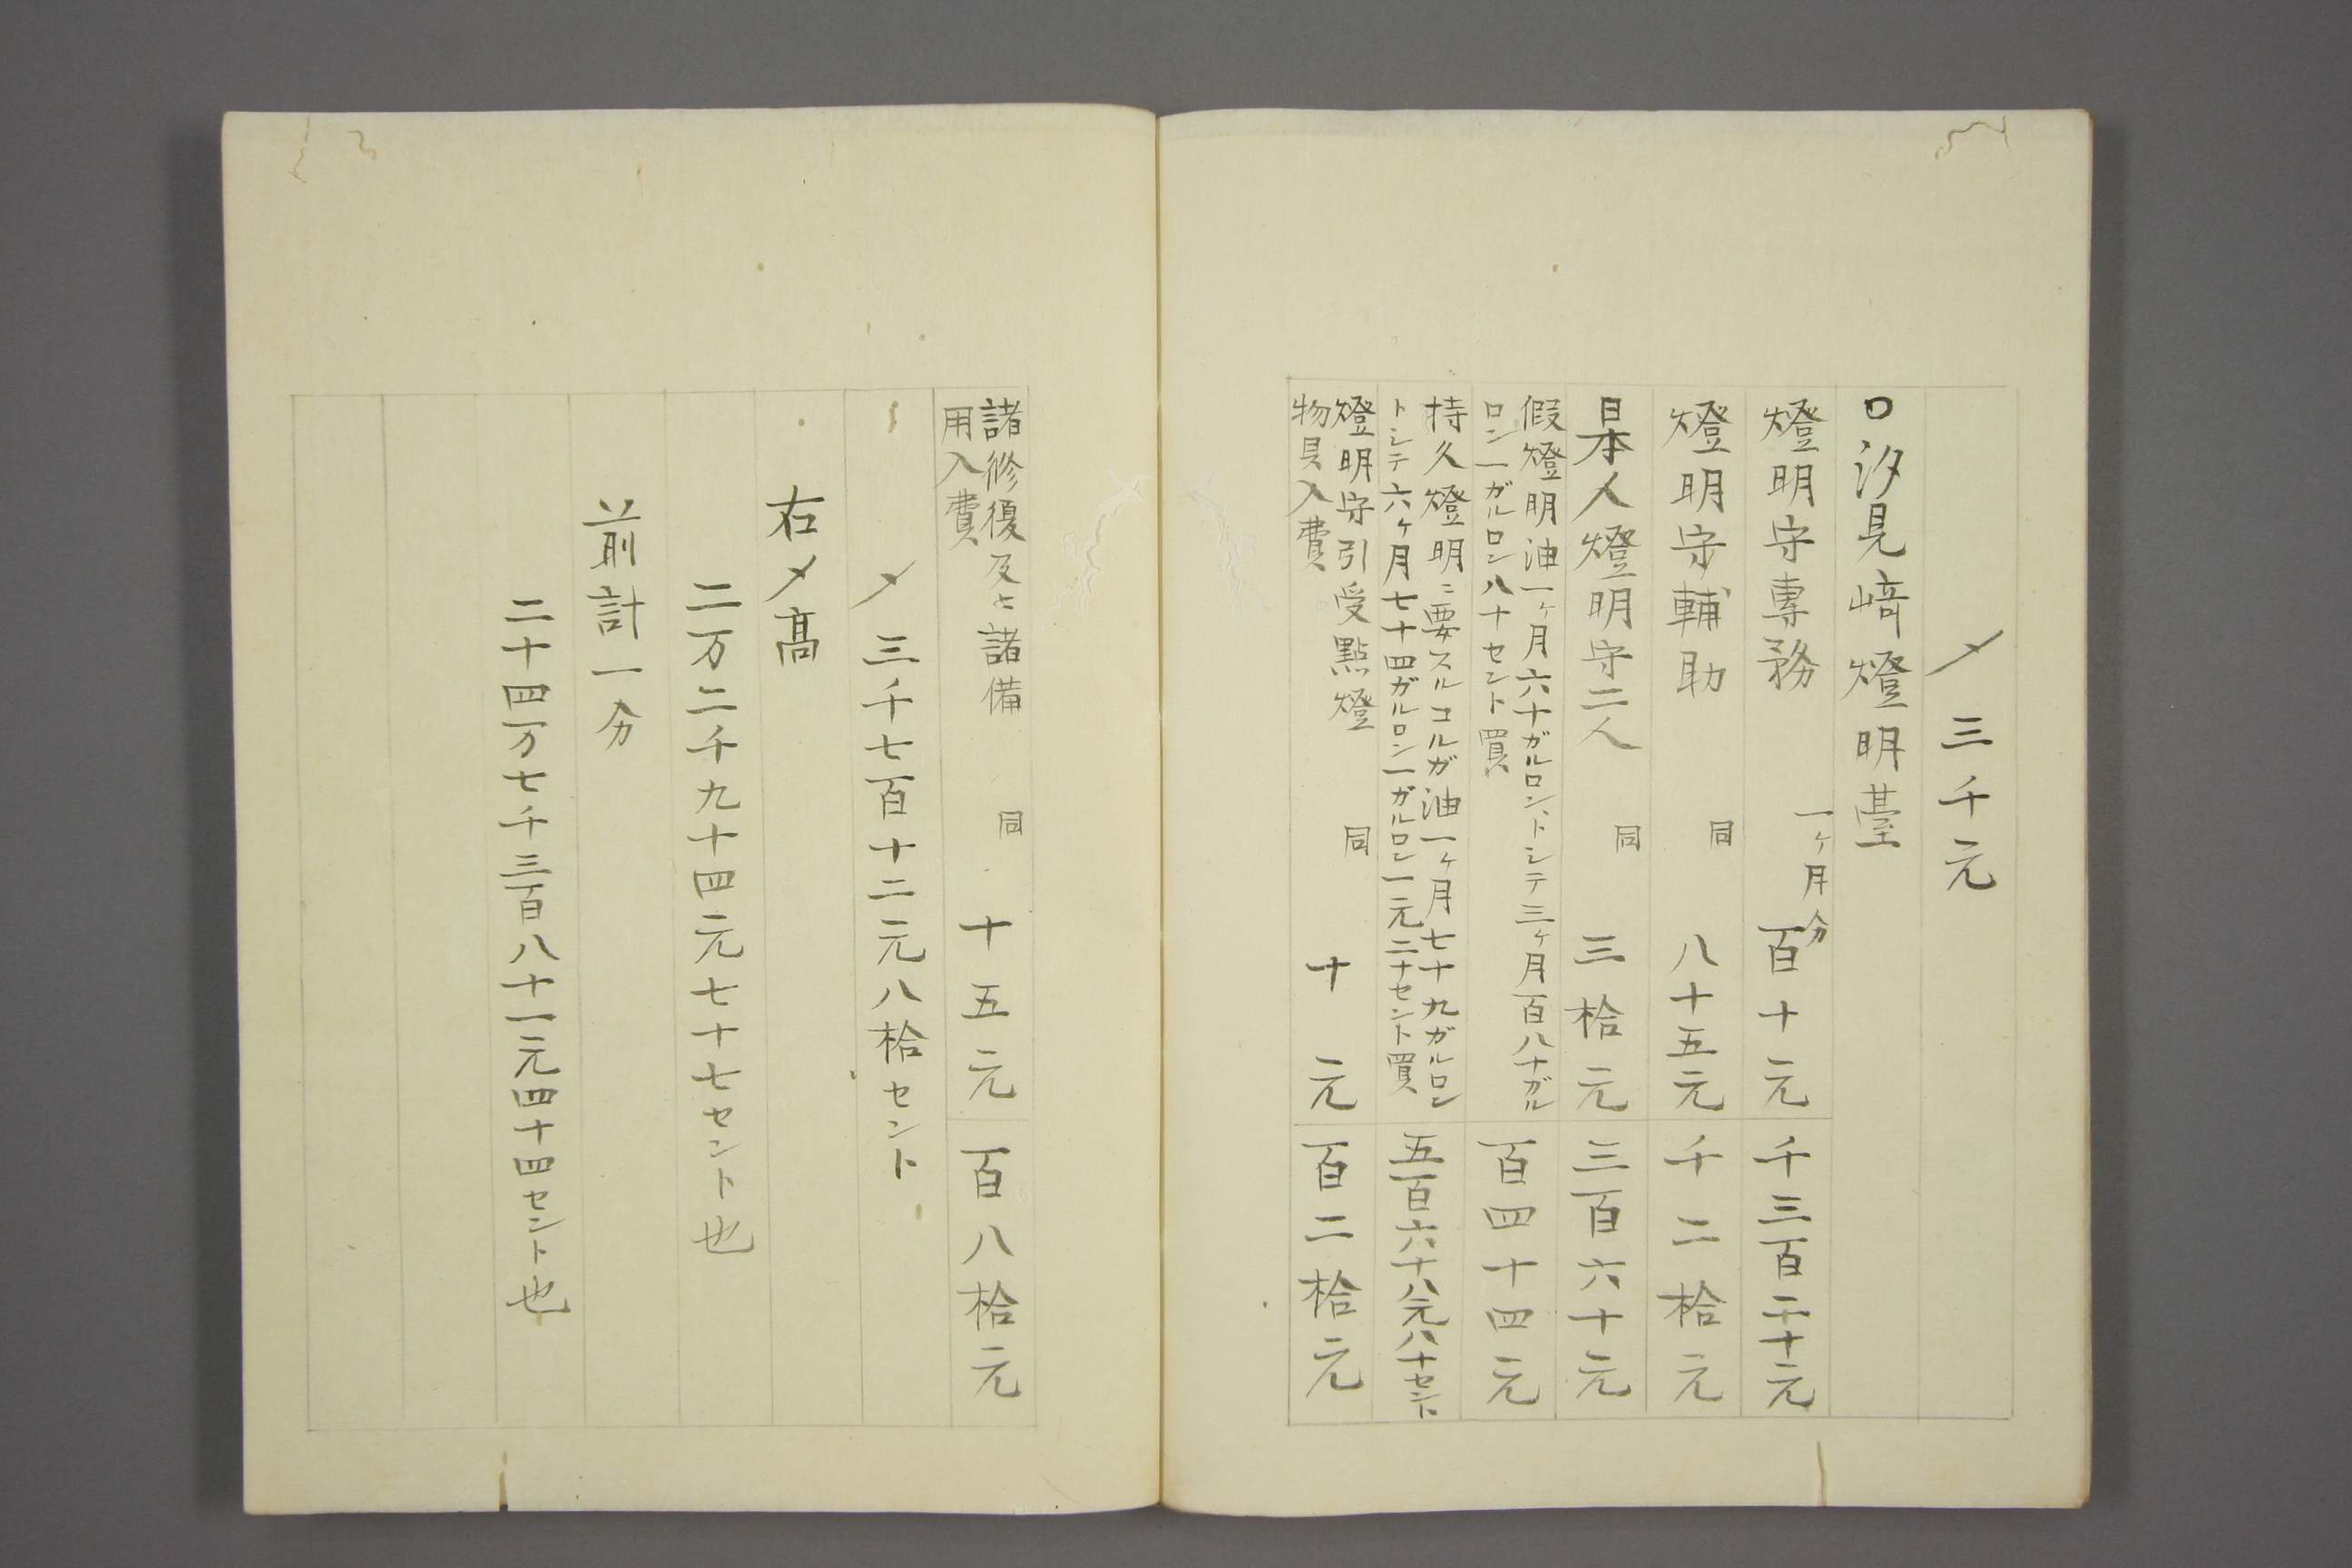 〆三千元
口汐見﨑燈明臺
燈明守專務 一ヶ月分 百十元 千三百二十元
燈明守輔助 同 八十五元 千二拾元
日本人燈明守二人 同 三拾元 三百六十元
假燈明油一ヶ月六十ガルロントシテ三ヶ月百八十ガル
ロン一ガルロン八十セント買 百四十四元
持久燈明ニ要スルコルガ油一ヶ月七十九ガルロン
トシテ六ヶ月七十四ガルロン一ガルロン一元二十セント買 五百六十八元八十セント
燈明守引受點燈
物具入費 同 十元 百二拾元
諸修復及ヒ諸備
用入費 同 十五元 百八拾元
〆三千七百十二元八拾セント
右〆高
二万二千九十四元七十七セント也
前計一分
二十四万七千三百八十一元四十四セント也